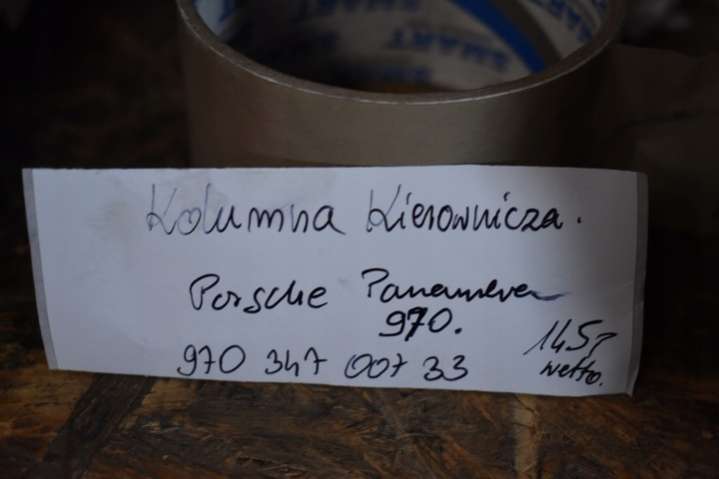 SMART
Kolumna Kierownicza.
Porsche Panamera
970.
970 347 007 33
netto.